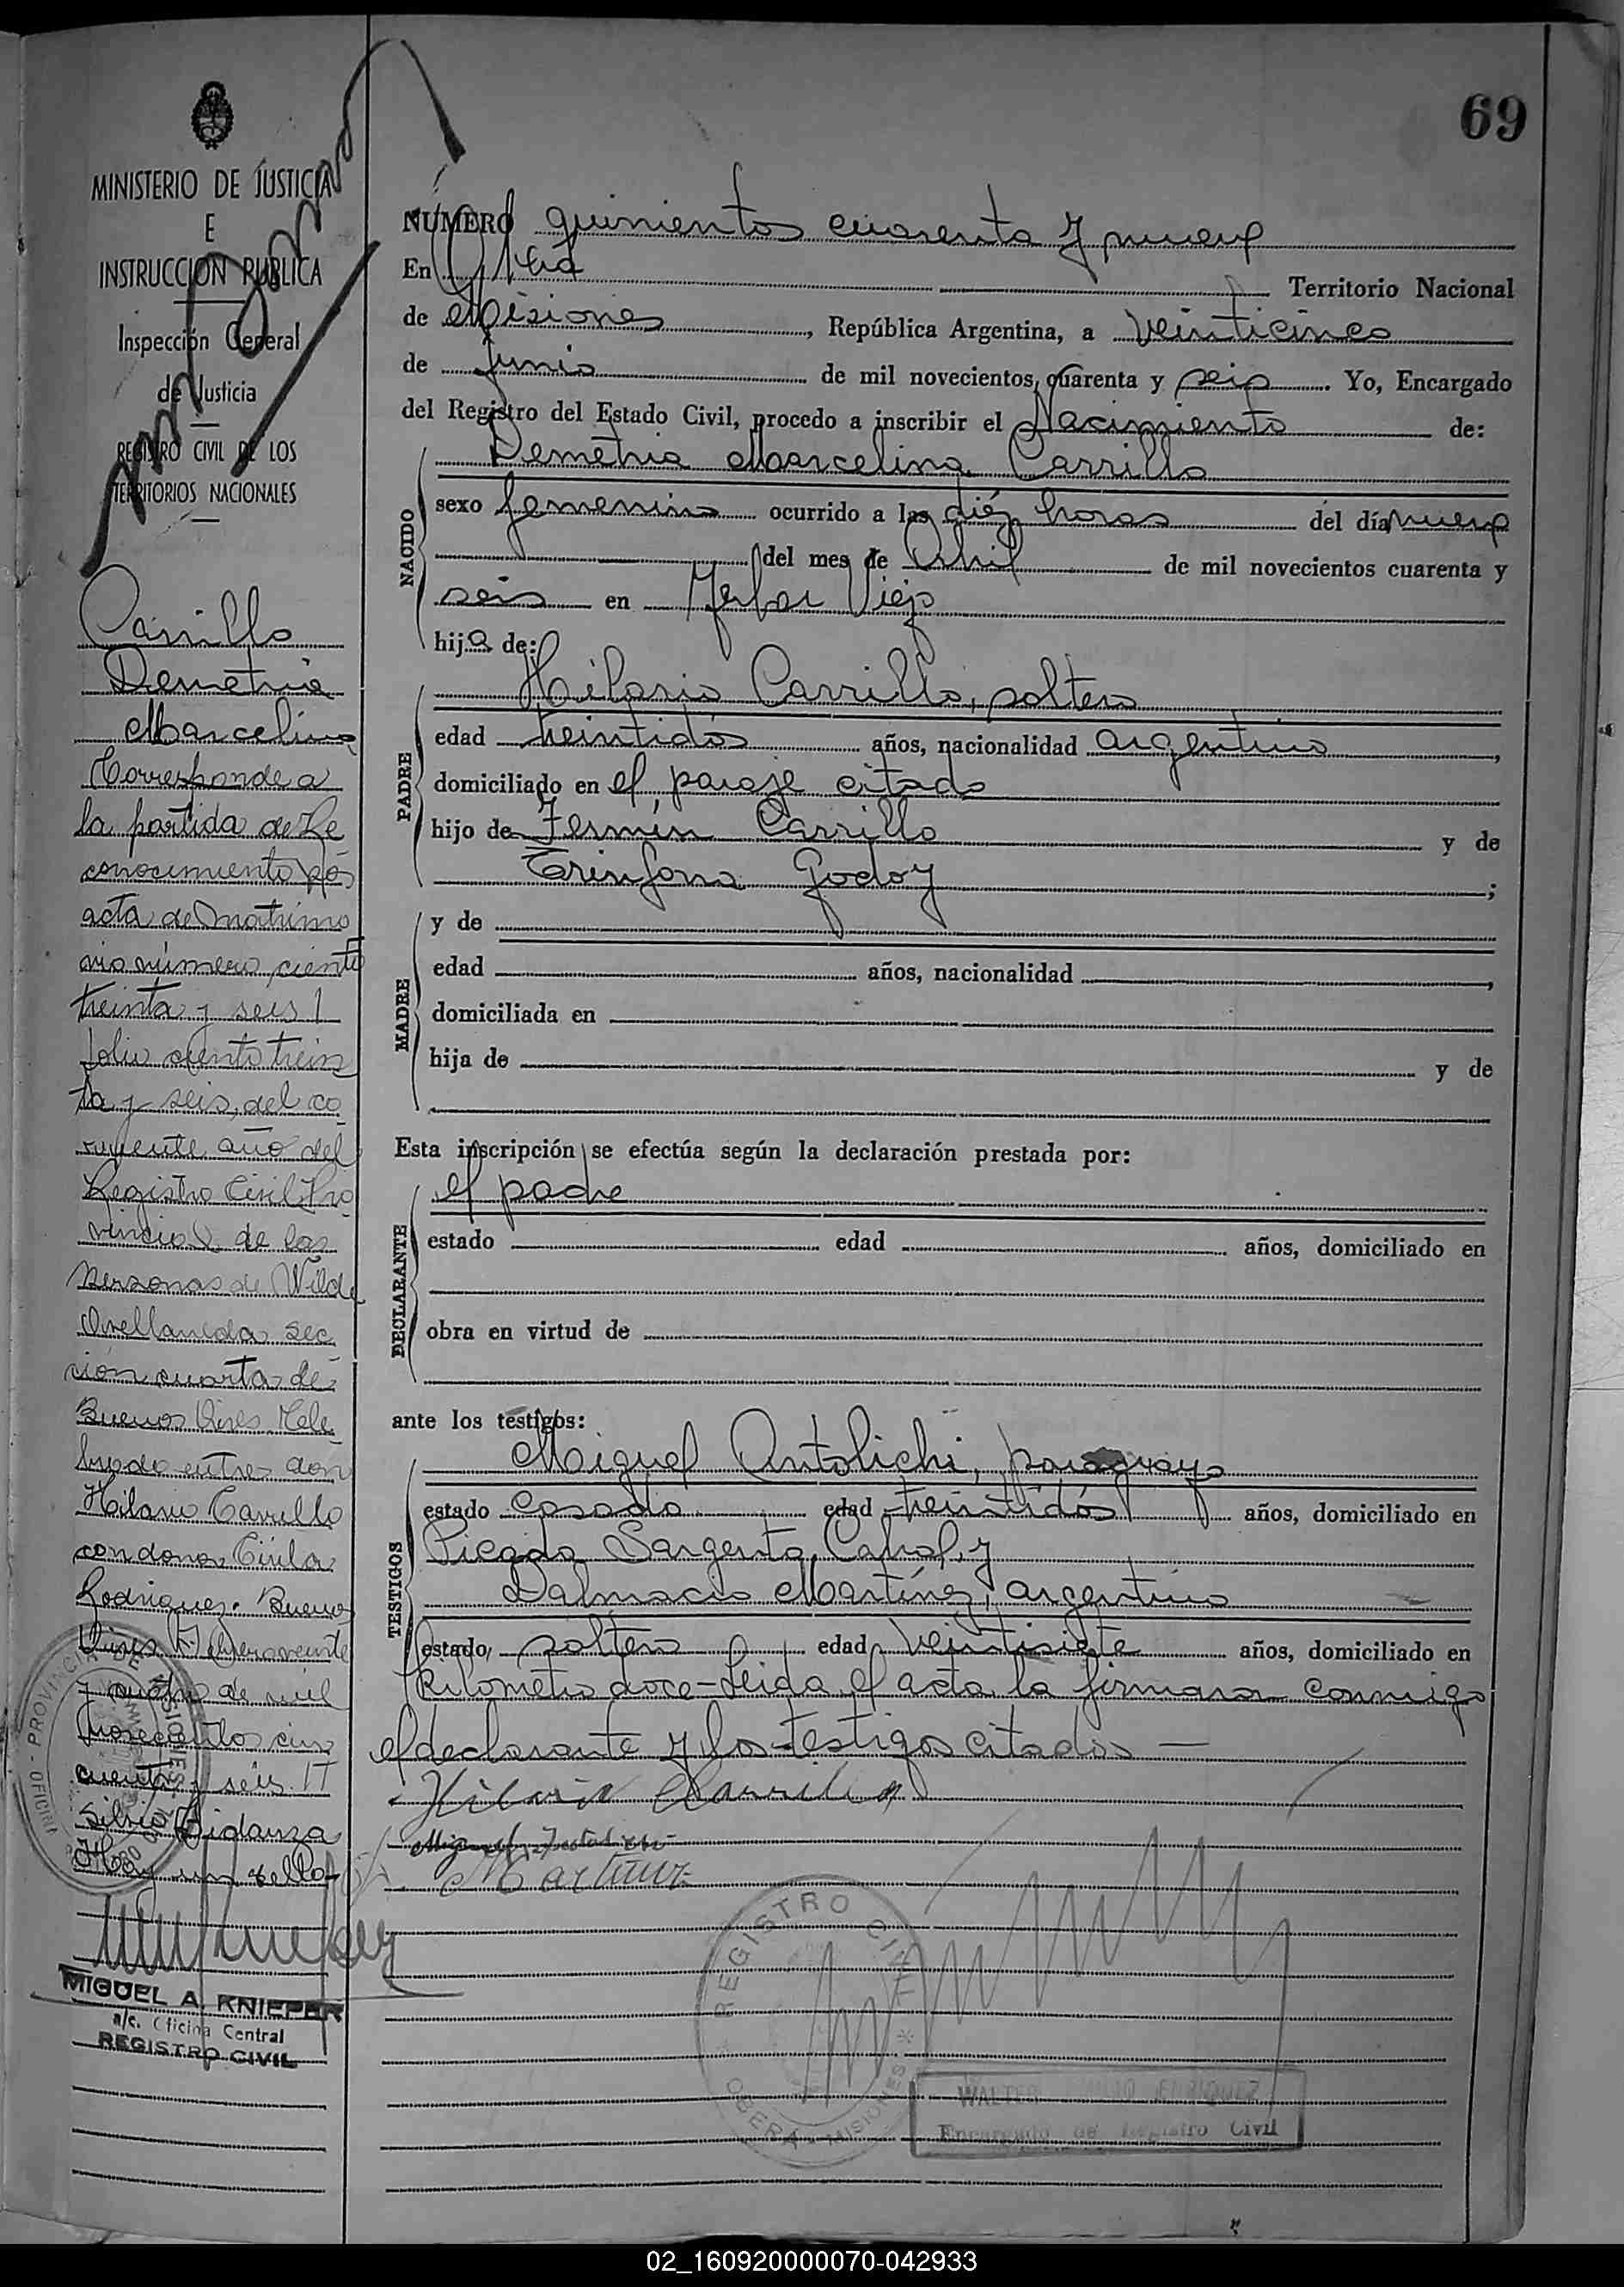 69
MINISTERIO DE JUSTICIA
E
INSTRUCCION PUBLICA
Inspección General
de Justicia
REGISTRO CIVIL DE LOS
TERRITORIOS NACIONALES
Carrillo
Demetria
Marcelina
Corresponde a
la partida de Re
conocimiento por
acta de Matrimo
nio número ciento
treinta y seis
folio ciento trein
ta y seis, del co
rriente año del
Registro Civil Pro
vincial de las
Personas de Wilde
Avellaneda sec
ción cuarta de
Buenos Aires. Cele
brado entre don
Hilario Carrillo
con dona
Rodriguez. Buenos
Aires Febrero veinte
y cuatro de mil
novecientos cin
cuenta y seis.
Silvio
Hay un sello
MIGUEL A. KNIEPER
a/c. Oficina Central
REGISTRO CIVIL
PROVINCIA DE MISIONES
NUMERO quinientos cuarenta y nueve
En Oberá Territorio Nacional
de Misiones, República Argentina, a veinticinco
de junio de mil novecientos cuarenta y seis. Yo, Encargado
del Registro del Estado Civil, procedo a inscribir el Nacimiento de:
NACIDO
Demetria Marcelina Carrillo
sexo femenino ocurrido a las diéz horas del día nueve
del mes de Abril de mil novecientos cuarenta y
seis en Yerbal Viejo
hija de:
PADRE
Hilario Carrillo, soltero
edad treintidós años, nacionalidad argentino,
domiciliado en el paraje citado
hijo de Fermín Carrillo y de
Trinfona Godoy;
MADRE
y de
edad años, nacionalidad,
domiciliada en
hija de y de
Esta inscripción se efectúa según la declaración prestada por:
DECLARANTE
el padre
estado edad años, domiciliado en
obra en virtud de
ante los testigos:
TESTIGOS
Miguel Antolichi, paraguayo
estado casado edad treintidós años, domiciliado en
Picada Sargento Cabral, y
Dalmacio Martínez, argentino
estado soltero edad veintisiete años, domiciliado en
Kilometro doce-Leida el acta la firmaron conmigo
el declarante y los testigos citados —
Hilario Carrillo
Martinez
REGISTRO CIVIL
OBERA - MISIONES
WALTER
Encargado de Registro Civil
02_160920000070-042933